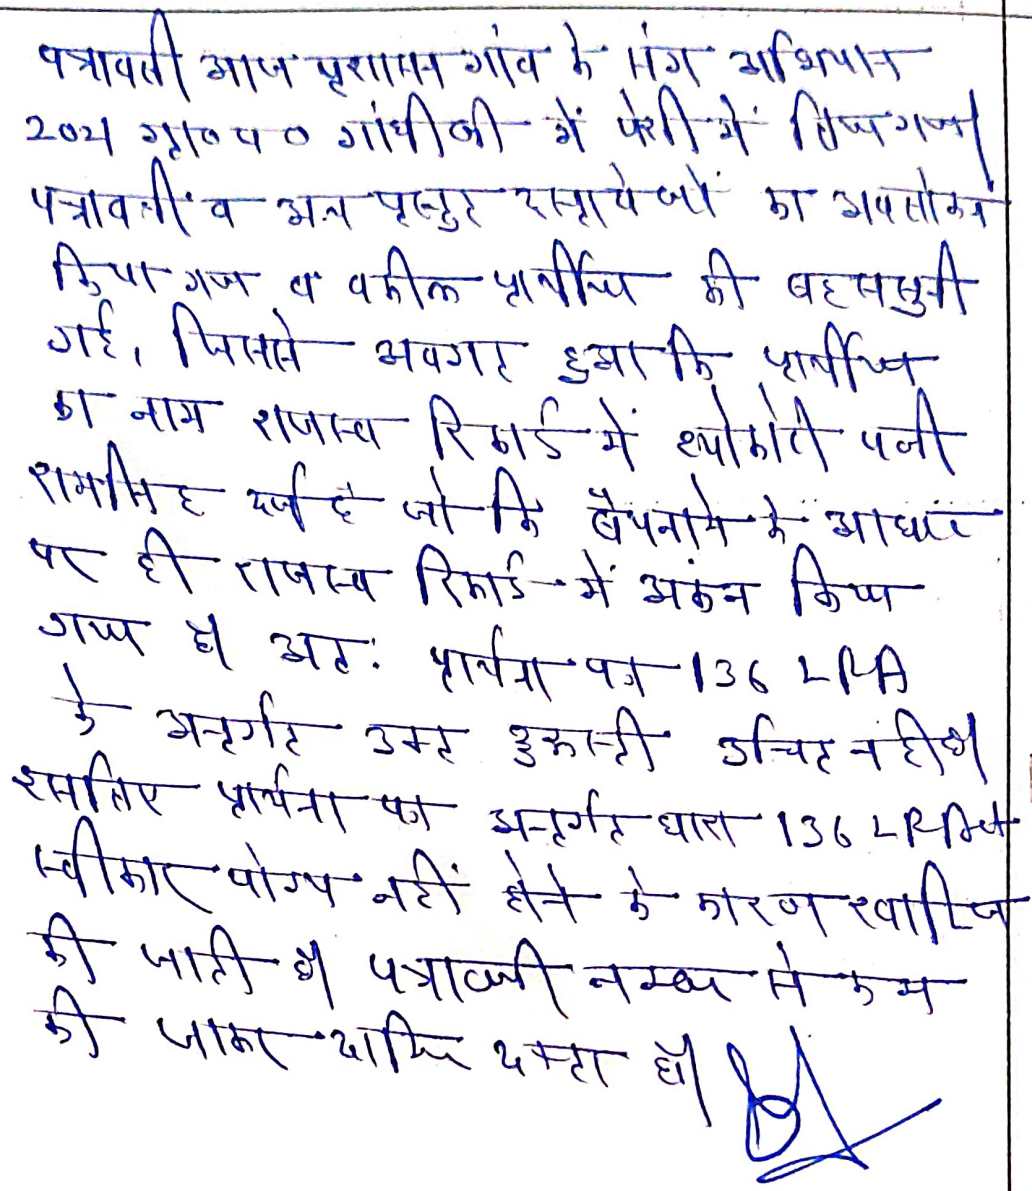 पत्रावली आज प्रशासन गांव के संग अभियान
2021 ग्रा० प० गांधीजी में पेशी में लिया गया।
पत्रावली व अन्य प्रस्तुत दस्तावेजों का अवलोकन
किया गया व वकील प्रार्थीया की बहस सुनी
गई, जिससे अवगत हुआ कि प्रार्थीया
का नाम राजस्व रिकार्ड में श्योकोरी पत्नी
रामसिंह दर्ज है जो कि बैयनामे के आधार
पर ही राजस्व रिकार्ड में अकंन किया
गया है। अतः प्रार्थना पत्र 136 LRA
के अन्तर्गत उक्त दुरूस्ती उचित नहीं है।
इसलिए प्रार्थना पत्र अन्तर्गत धारा 136 LRAct
स्वीकार योग्य नहीं होने के कारण खारिज
की जाती है। पत्रावली नम्बर से कम
की जाकर दाखिल दफ्तर हो।